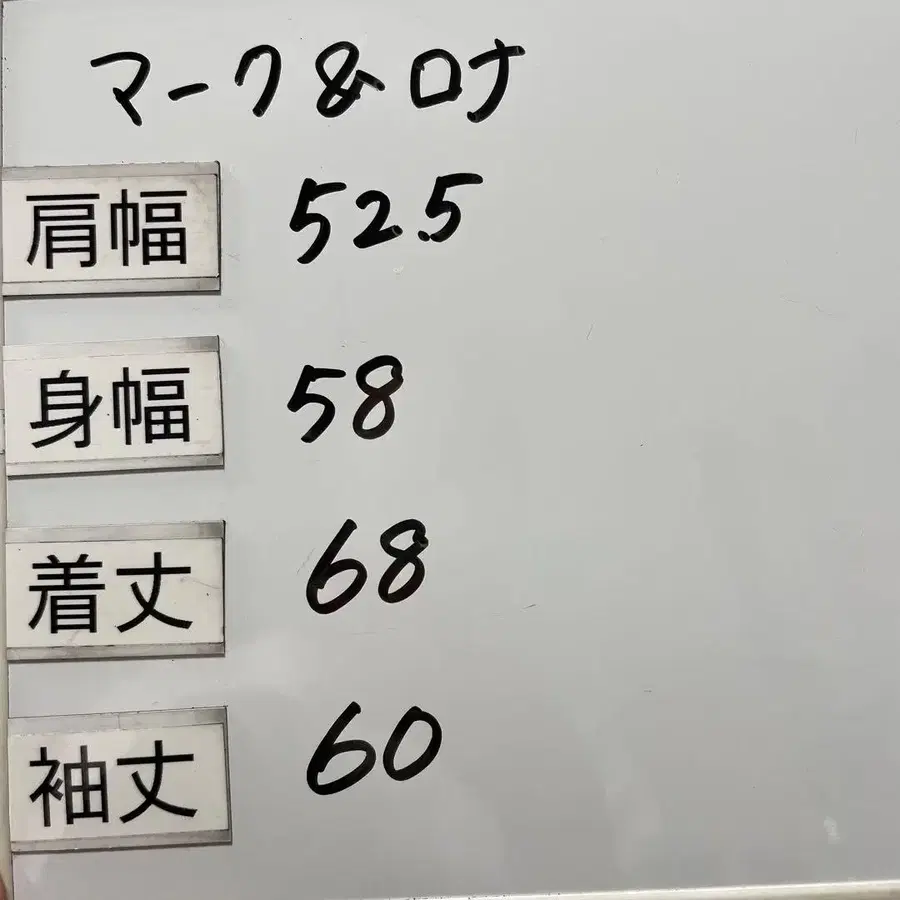 マーク&ロナ
肩幅 52.5
身幅 58
着丈 68
袖丈 60